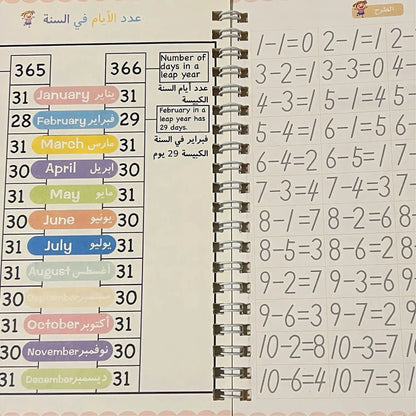 عدد الأيام في السنة
365 366 Number of
days in a
leap year
عدد أيام السنة
الكبيسة
31 January يناير 31
28 February فبراير 29
February in a
leap year has
29 days.
فبراير في السنة
الكبيسة 29 يوم
31 March مارس 31
30 April ابريل 30
31 May مايو 31
30 June يونيو 30
31 July يوليو 31
31 August أغسطس 31
30 September سبتمبر 30
31 October أكتوبر 31
30 November نوفمبر 30
31 December ديسمبر 31
الطرح
1-1=0 2-1=1 2-
3-2=1 3-3=0 4-
4-3=1 5-1=4 5-
5-4=1 6-1=5 6-
6-4=2 6-5=1 7-
7-3=4 7-4=3 7-
8-1=7 8-2=6 8-
8-5=3 8-6=2 8-
9-2=7 9-3=6 9-
9-6=3 9-7=2 9-
10-2=8 10-3=7 10
10-6=4 10-7=3 1